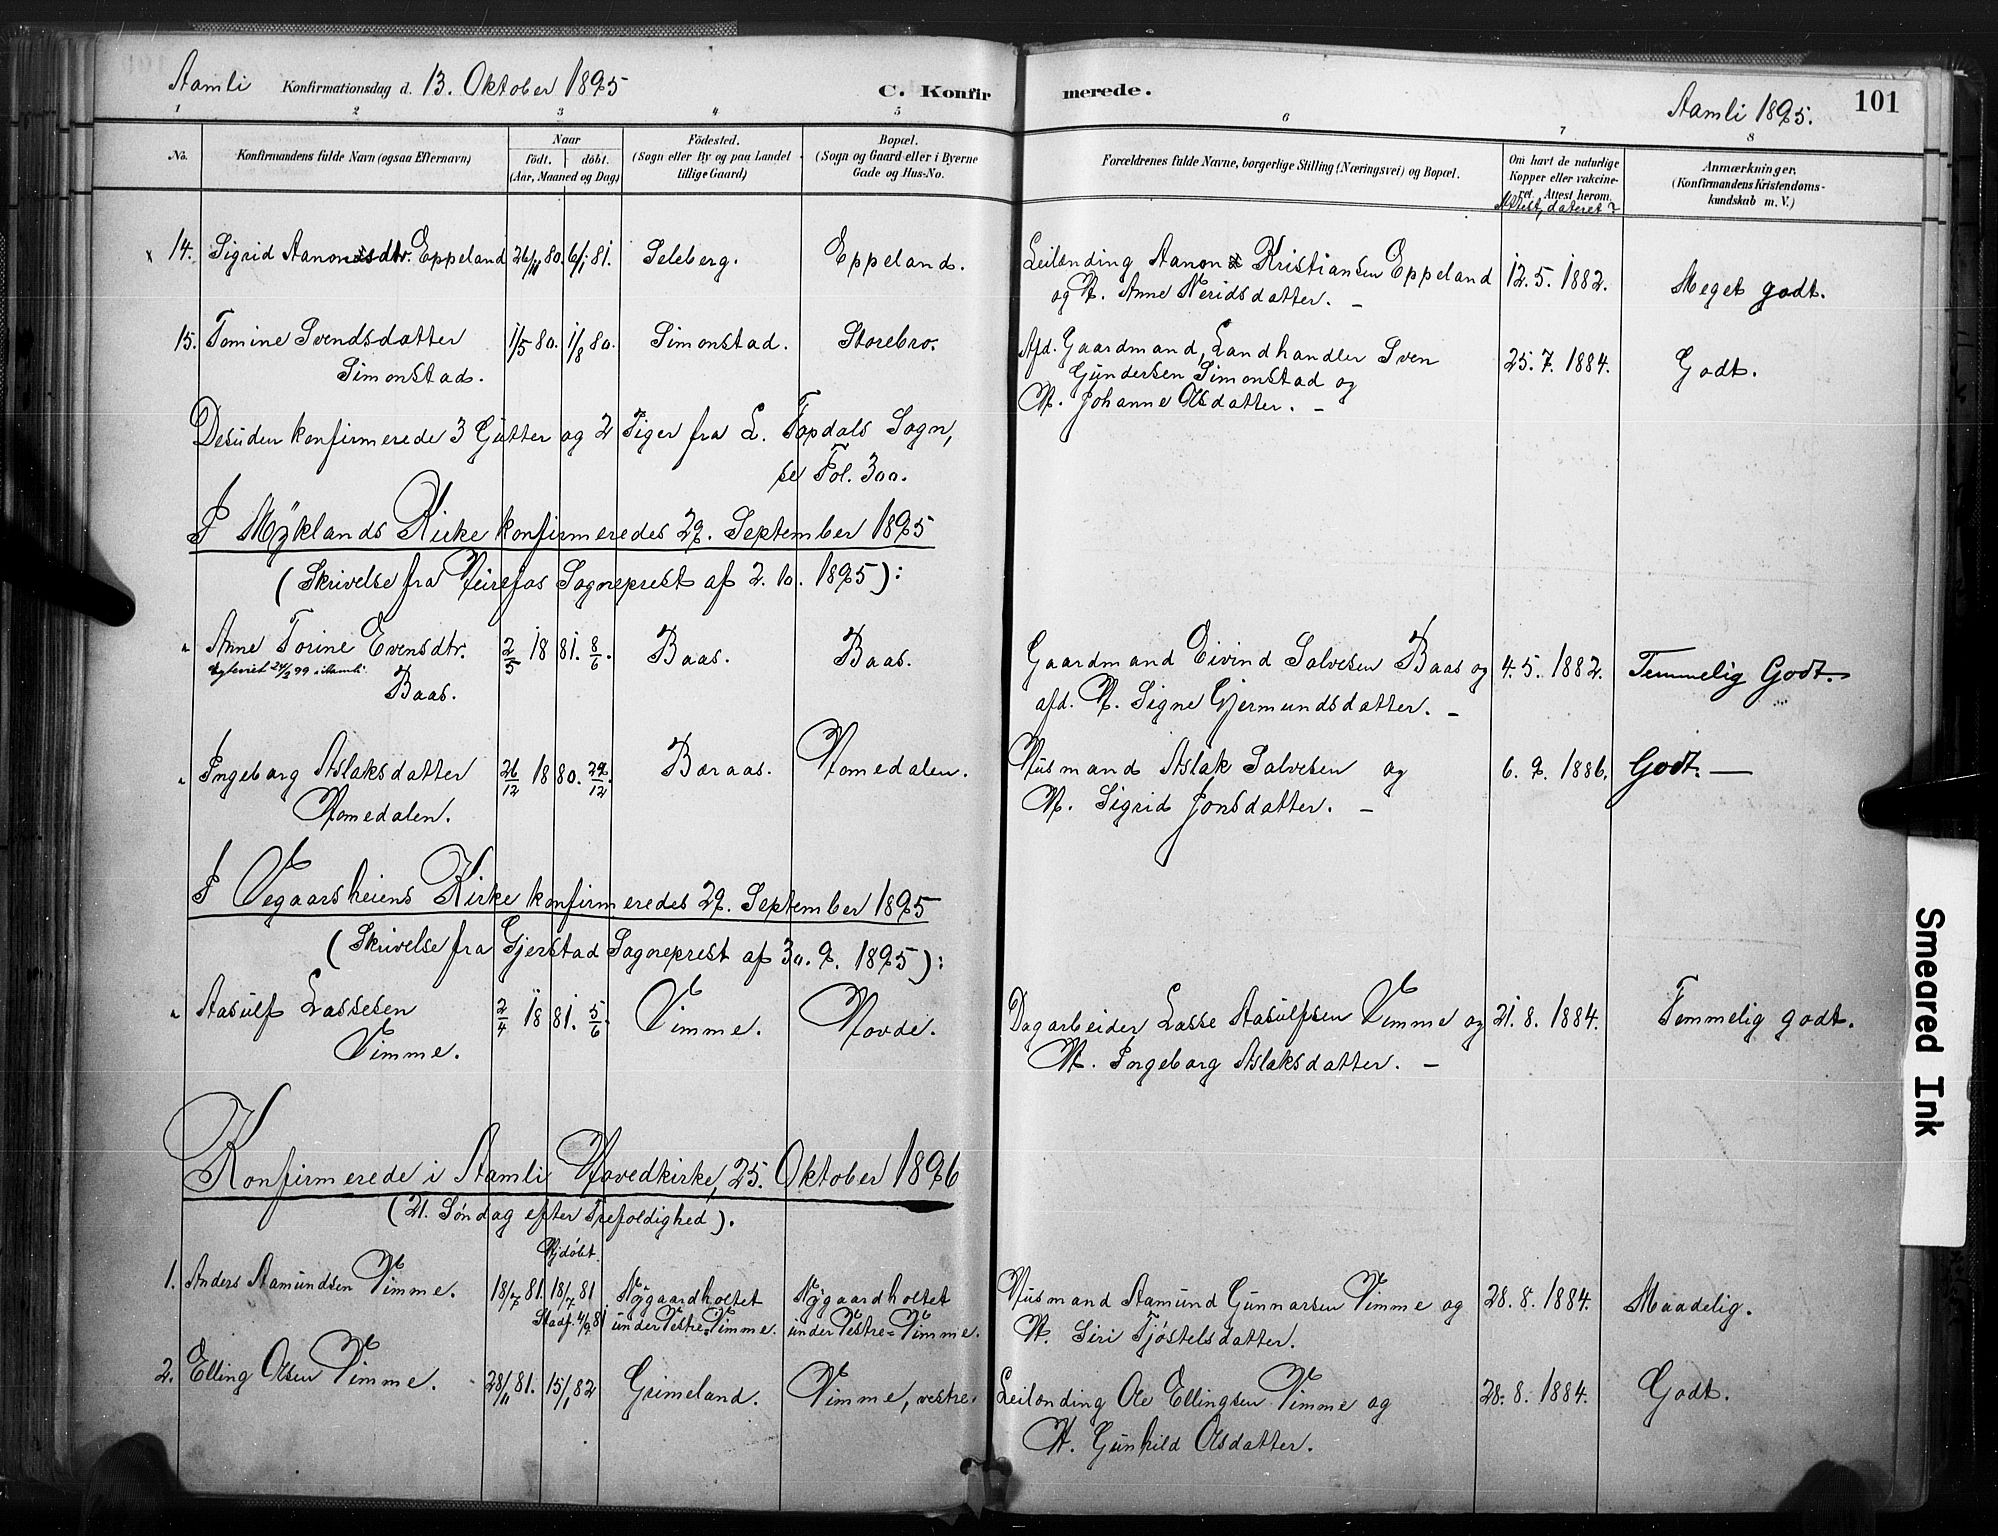 Aamli Konfirmationsdag d. 13. Oktober 1895 C. Konfir merede. Aamli 1895. 101
1 2 3 4 5 6 7 8
No.
Konfirmandens fulde Navn (ogsaa Efternavn)
Naar
födt. döbt.
(Aar, Maaned og Dag)
Födested.
(Sogn eller By og paa Landet
tillige Gaard)
Bopæl.
(Sogn og Gaard eller i Byerne
Gade og Hus-No.
Forældrenes fulde Navne, borgerlige Stilling (Næringsvei) og Bopæl.
Om havt de naturlige
Kopper eller vakcine-
ret. Attest herom.
Attest, dateret?
Anmærkninger.
(Konfirmandens Kristendoms-
kundskab m. V.)
x 14. Sigrid Aanonsdtr. Eppeland 26/11 80. 6/1 81. Seleberg. Eppeland. Leilending Aanon Kristiansen Eppeland 12. 5. 1882. Meget godt.
og H. Anne Neridsdatter. –
15. Tomine Svendsdatter 1/5 80. 1/8 80. Simonstad. Storebro. Afd. Gaardmand, Landhandler Sven 25. 7. 1884. Godt.
Simonstad. Gundersen Simonstad og
H. Johanne Olsdatter. –
Desuden konfirmerede 3 Gutter og 2 Piger fra L. Topdals Sogn,
se Fol. 300.
I Myklands Kirke konfirmeredes 29. September 1895
(Skrivelse fra Heirefos Sogneprest af 2. 10. 1895):
" Anne Torine Evensdtr. 2/5 1881. 8/6 Baas. Baas. Gaardmand Eivind Salvesen Baas og 4. 5. 1882. Temmelig Godt.
24/2 99 i Aamli
Baas. afd. H. Signe Gjermundsdatter. –
" Ingeborg Aslaksdatter 26/12 1880. 29/12. Beraas. Homedalen. Husmand Aslak Salvesen og 6. 9. 1886. Godt. –
Homedalen. H. Sigrid Jonsdatter. –
I Vegaarsheiens Kirke konfirmeredes 29. September 1895
(Skrivelse fra Gjerstad Sogneprest af 30. 9. 1895):
" Aasulf Lassesen 2/4 1881. 5/6 Vimme. Hovde. Dagarbeider Lasse Aasulfsen Vimme og 21. 8. 1884. Temmelig godt.
Vimme. H. Ingeborg Aslaksdatter. –
Konfirmerede i Aamli Hovedkirke, 25. Oktober 1896
(21. Søndag efter Trefoldighed).
Hjdøbt.
1. Anders Aamundsen Vimme. 18/7 81. 18/7 81 Nygaardholtet Nygaardholtet Husmand Aamund Gunnarsen Vimme og 28. 8. 1884. Maadelig.
Stadf. 4/9 81 under Vestre-Vimme. under Vestre-Vimme. H. Siri Tjøstelsdatter.
2. Elling Olsen Vimme. 28/11 81. 15/1 82 Grimeland. Vimme, vestre. Leilending Ole Ellingsen Vimme og 28. 8. 1884. Godt.
H. Gunhild Olsdatter.
Smeared Ink